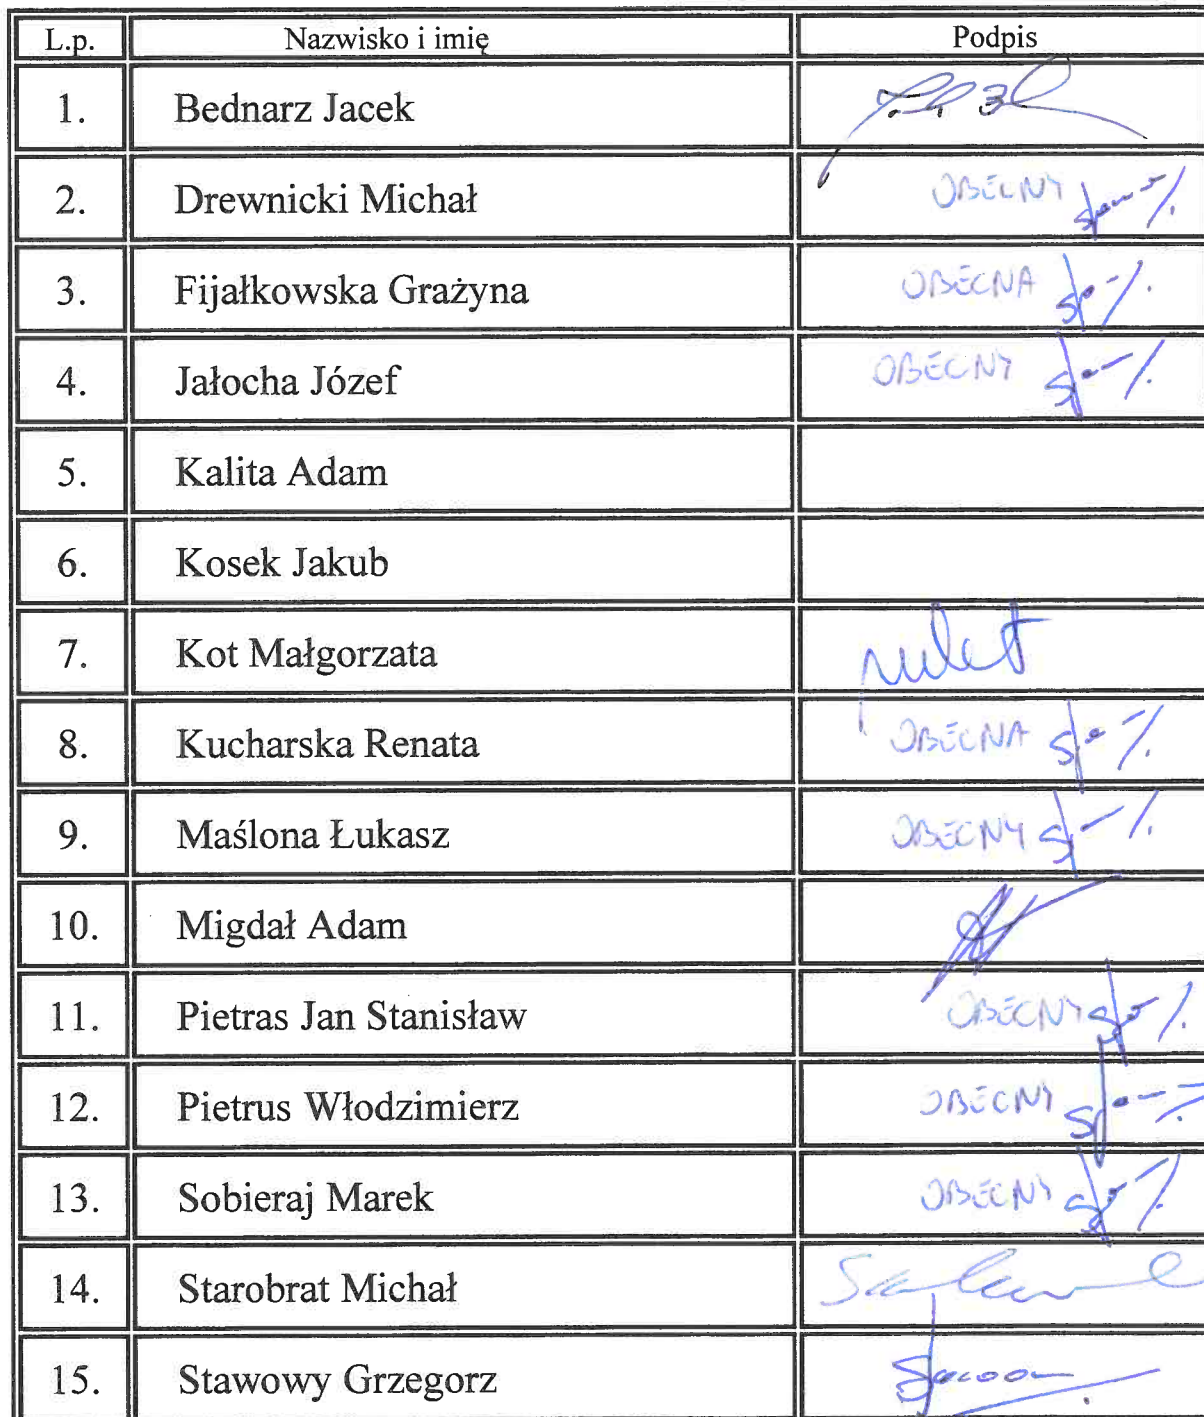 L.p. Nazwisko i imię Podpis
1. Bednarz Jacek
2. Drewnicki Michał OBECNY
3. Fijałkowska Grażyna OBECNA
4. Jałocha Józef OBECNY
5. Kalita Adam
6. Kosek Jakub
7. Kot Małgorzata
8. Kucharska Renata OBECNA
9. Maślona Łukasz OBECNY
10. Migdał Adam
11. Pietras Jan Stanisław OBECNY
12. Pietrus Włodzimierz OBECNY
13. Sobieraj Marek OBECNY
14. Starobrat Michał
15. Stawowy Grzegorz